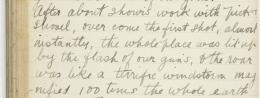 After about 3 hours work with pick &
shovel, over come the first shot, almost
instantly, the whole place was lit up
by the flash of our guns, & the roar
was like a terrific windstorm mag
nified 100 times the whole earth